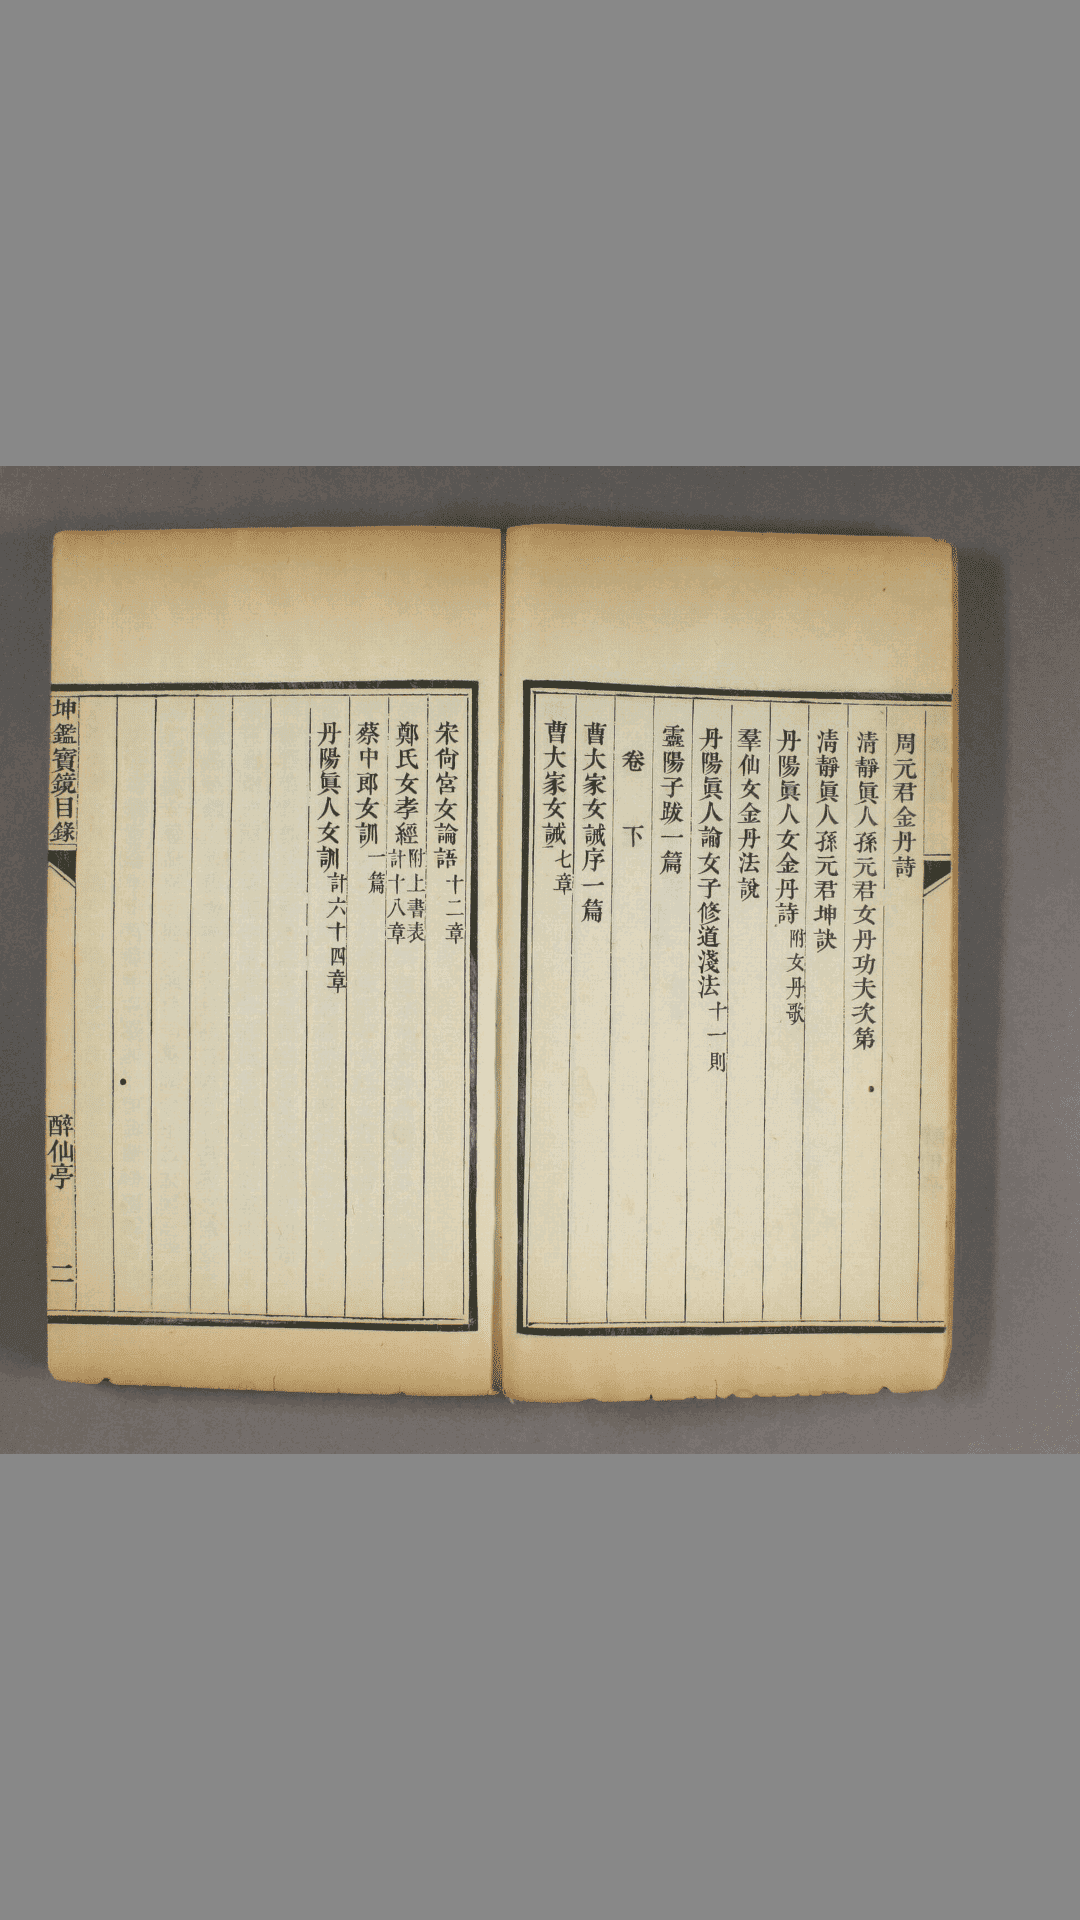 周元君金丹詩
清靜眞人孫元君女丹功夫次第
清靜眞人孫元君坤訣
丹陽眞人女金丹詩附女丹歌
羣仙女金丹法說
丹陽眞人諭女子修道淺法十一則
靈陽子跋一篇
卷下
曹大家女誡序一篇
曹大家女誡七章
宋尙宮女論語十二章
鄭氏女孝經附上書表計十八章
蔡中郎女訓一篇
丹陽眞人女訓計六十四章
坤鑑寶鏡目錄
醉仙亭
二